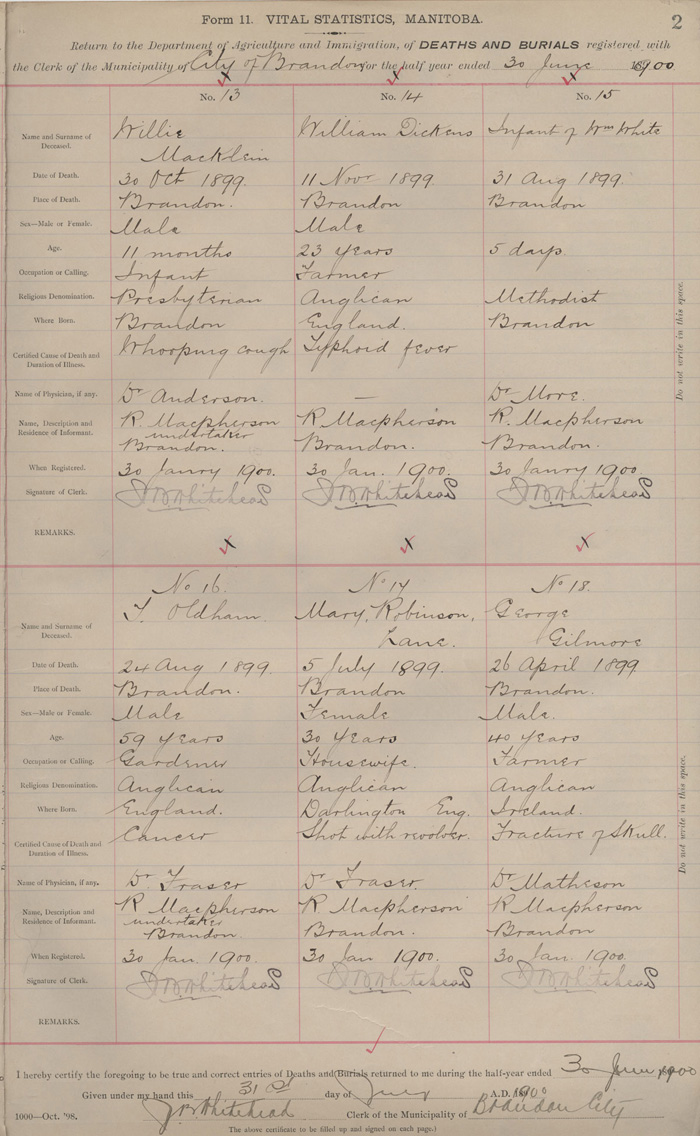 2
Form 11. VITAL STATISTICS, MANITOBA.
Return to the Department of Agriculture and Immigration, of DEATHS AND BURIALS registered with
the Clerk of the Municipality of City of Brandon for the half year ended 30 June 1900
No. 13 No. 14 No. 15
Name and Surname of Deceased. Willie Macklein William Dickens Infant of Wm White
Date of Death. 30 Oct 1899. 11 Novr 1899. 31 Aug 1899.
Place of Death. Brandon. Brandon Brandon
Sex—Male or Female. Male Male
Age. 11 months 23 years 5 days
Occupation or Calling. Infant Farmer
Religious Denomination. Presbyterian Anglican Methodist
Where Born. Brandon England. Brandon
Certified Cause of Death and Duration of Illness. Whooping cough Typhoid fever
Name of Physician, if any. Dr Anderson. — Dr More.
Name, Description and Residence of Informant. R. Macpherson undertaker Brandon. R Macpherson Brandon. R. Macpherson Brandon.
When Registered. 30 Janry 1900. 30 Jan. 1900. 30 Janry 1900.
Signature of Clerk. Whitehead Whitehead Whitehead
REMARKS.
Do not write in this space.
No 16. No 17 No 18.
Name and Surname of Deceased. T. Oldham. Mary, Robinson, Lane. George Gilmore
Date of Death. 24 Aug 1899. 5 July 1899. 26 April 1899
Place of Death. Brandon. Brandon Brandon.
Sex—Male or Female. Male Female Male.
Age. 59 years 30 years 40 years
Occupation or Calling. Gardener Housewife. Farmer
Religious Denomination. Anglican Anglican Anglican
Where Born. England. Darlington Eng. Ireland.
Certified Cause of Death and Duration of Illness. Cancer Shot with revolver. Fracture of Skull.
Name of Physician, if any. Dr Fraser Dr Fraser. Dr Matheson
Name, Description and Residence of Informant. R Macpherson undertaker Brandon. R Macpherson Brandon. R Macpherson Brandon
When Registered. 30 Jan. 1900. 30 Jan 1900. 30 Jan. 1900.
Signature of Clerk. Whitehead Whitehead Whitehead
REMARKS.
Do not write in this space.
I hereby certify the foregoing to be true and correct entries of Deaths and Burials returned to me during the half-year ended 30 June 1900
Given under my hand this 31st day of July A.D. 1900
1000—Oct. '98. Whitehead Clerk of the Municipality of Brandon City
The above certificate to be filled up and signed on each page.)